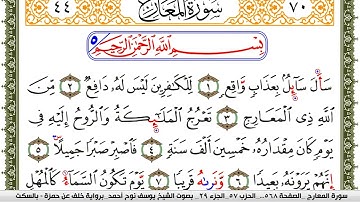 ٤٤ سُورَةُ المَعَارِجِ ٧٠
بِسْمِ اللَّهِ الرَّحْمَٰنِ الرَّحِيمِ
سَأَلَ سَآئِلٌۢ بِعَذَابٍ وَاقِعٍ ١ لِّلْكَٰفِرِينَ لَيْسَ لَهُۥ دَافِعٌ ٢ مِّنَ
ٱللَّهِ ذِى ٱلْمَعَارِجِ ٣ تَعْرُجُ ٱلْمَلَٰٓئِكَةُ وَٱلرُّوحُ إِلَيْهِ فِى
يَوْمٍ كَانَ مِقْدَارُهُۥ خَمْسِينَ أَلْفَ سَنَةٍ ٤ فَٱصْبِرْ صَبْرًا جَمِيلًا ٥
إِنَّهُمْ يَرَوْنَهُۥ بَعِيدًا ٦ وَنَرَىٰهُ قَرِيبًا ٧ يَوْمَ تَكُونُ ٱلسَّمَآءُ كَٱلْمُهْلِ
سورة المعارج - الصفحة ٥٦٨ - الحزب ٥٧ - الجزء ٢٩ - بصوت الشيخ يوسف نوح أحمد - برواية خلف عن حمزة - بالسكت